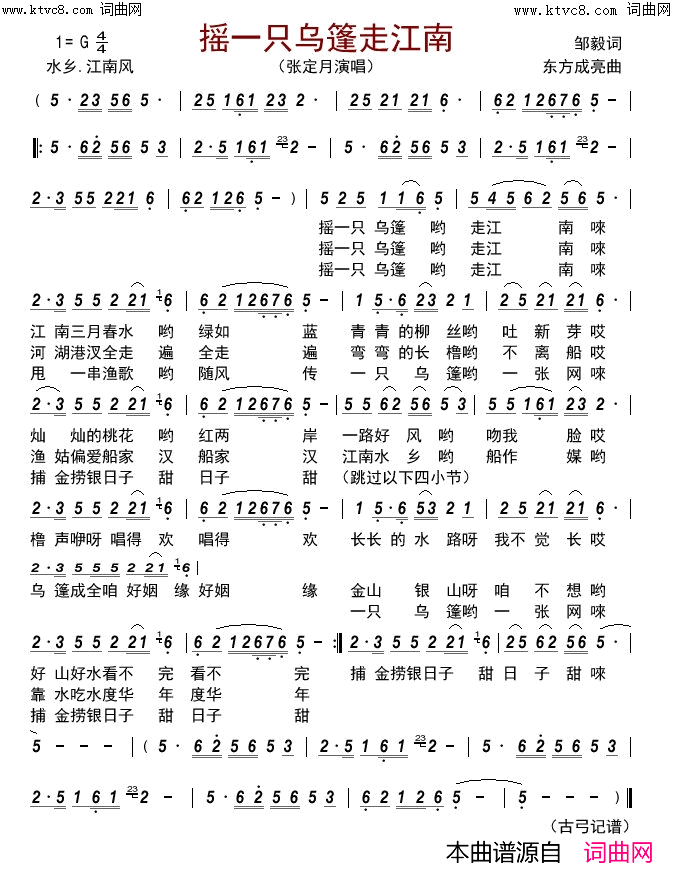 www.ktvc8.com 词曲网
www.ktvc8.com 词曲网
摇一只乌篷走江南
1= G 4/4
邹毅词
水乡.江南风
（张定月演唱）
东方成亮曲
( 5· 23 56 5· | 25 161 23 2· | 25 21 21 6· | 62 12676 5 – |
|: 5· 62 56 5 3 | 2·5 161 23 2 – | 5· 62 56 5 3 | 2·5 161 23 2 – |
2·3 55 221 6 | 62 126 5 – ) | 5 2 5 1 1 6 5 | 5 4 5 6 2 5 6 5· |
摇一只 乌篷 哟 走江 南 唻
摇一只 乌篷 哟 走江 南 唻
摇一只 乌篷 哟 走江 南 唻
2·3 5 5 2 21 1 6· | 6 2 12676 5 – | 1 5·6 23 2 1 | 5 25 21 6· |
江 南三月春水 哟 绿如 蓝 青 青 的柳 丝哟 吐 新 芽 哎
河 湖港汊全走 遍 全走 遍 弯 弯 的长 橹哟 不 离 船 哎
甩 一串渔歌 哟 随风 传 一 只 乌 篷哟 一 张 网 唻
2·3 5 5 2 21 1 6· | 6 2 12676 5 – | 5 5 62 56 5 3 | 5 5 161 23 2· |
灿 灿的桃花 哟 红两 岸 一路好 风 哟 吻我 脸 哎
渔 姑偏爱船家 汉 船家 汉 江南水 乡 哟 船作 媒 哟
捕 金捞银日子 甜 日子 甜 （跳过以下四小节）
2·3 5 5 2 21 1 6· | 6 2 12676 5 – | 1 5·6 23 2 1 | 2 5 21 21 6· |
橹 声咿呀 唱得 欢 唱得 欢 长长 的 水 路呀 我不 觉 长 哎
2·3 5 5 5 2 21 1 6· |
乌 篷成全咱 好姻 缘 好姻 缘 金山 银 山呀 咱 不 想 哟
一只 乌 篷哟 一 张 网 唻
2·3 5 5 2 21 1 6· | 6 2 12676 5 – :| 2·3 5 5 2 21 1 6 | 25 62 56 5· |
好 山好水看不 完 看不 完 捕 金捞银日子 甜 日 子 甜 唻
靠 水吃水度华 年 度华 年
捕 金捞银日子 甜 日子 甜
5 – – – | ( 5· 62 56 5 3 | 2·5 161 23 2 – | 5· 62 56 5 3 |
2·5 1 6 1 23 2 – | 5· 62 56 5 3 | 6 2 1 2 6 5 – | 5 – – – ) ‖
（古弓记谱）
本曲谱源自 词曲网